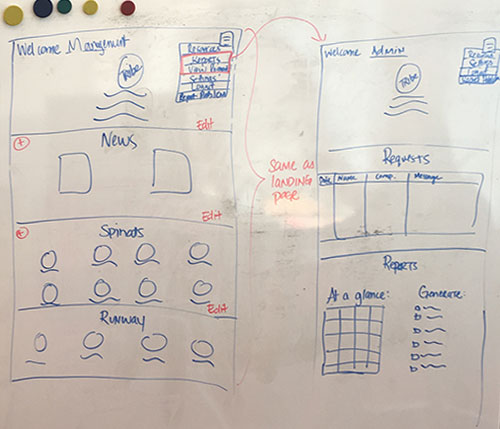 Welcome Management
Resources
Reports
Settings
Logout
Report Problem
Tribe
Edit
News
Edit
Spinats
Edit
Runway
Same as
Landing
page
Welcome Admin
Tribe
Settings
Logout
Requests
Date Name Comp. Message
Reports
At a glance: Generate: